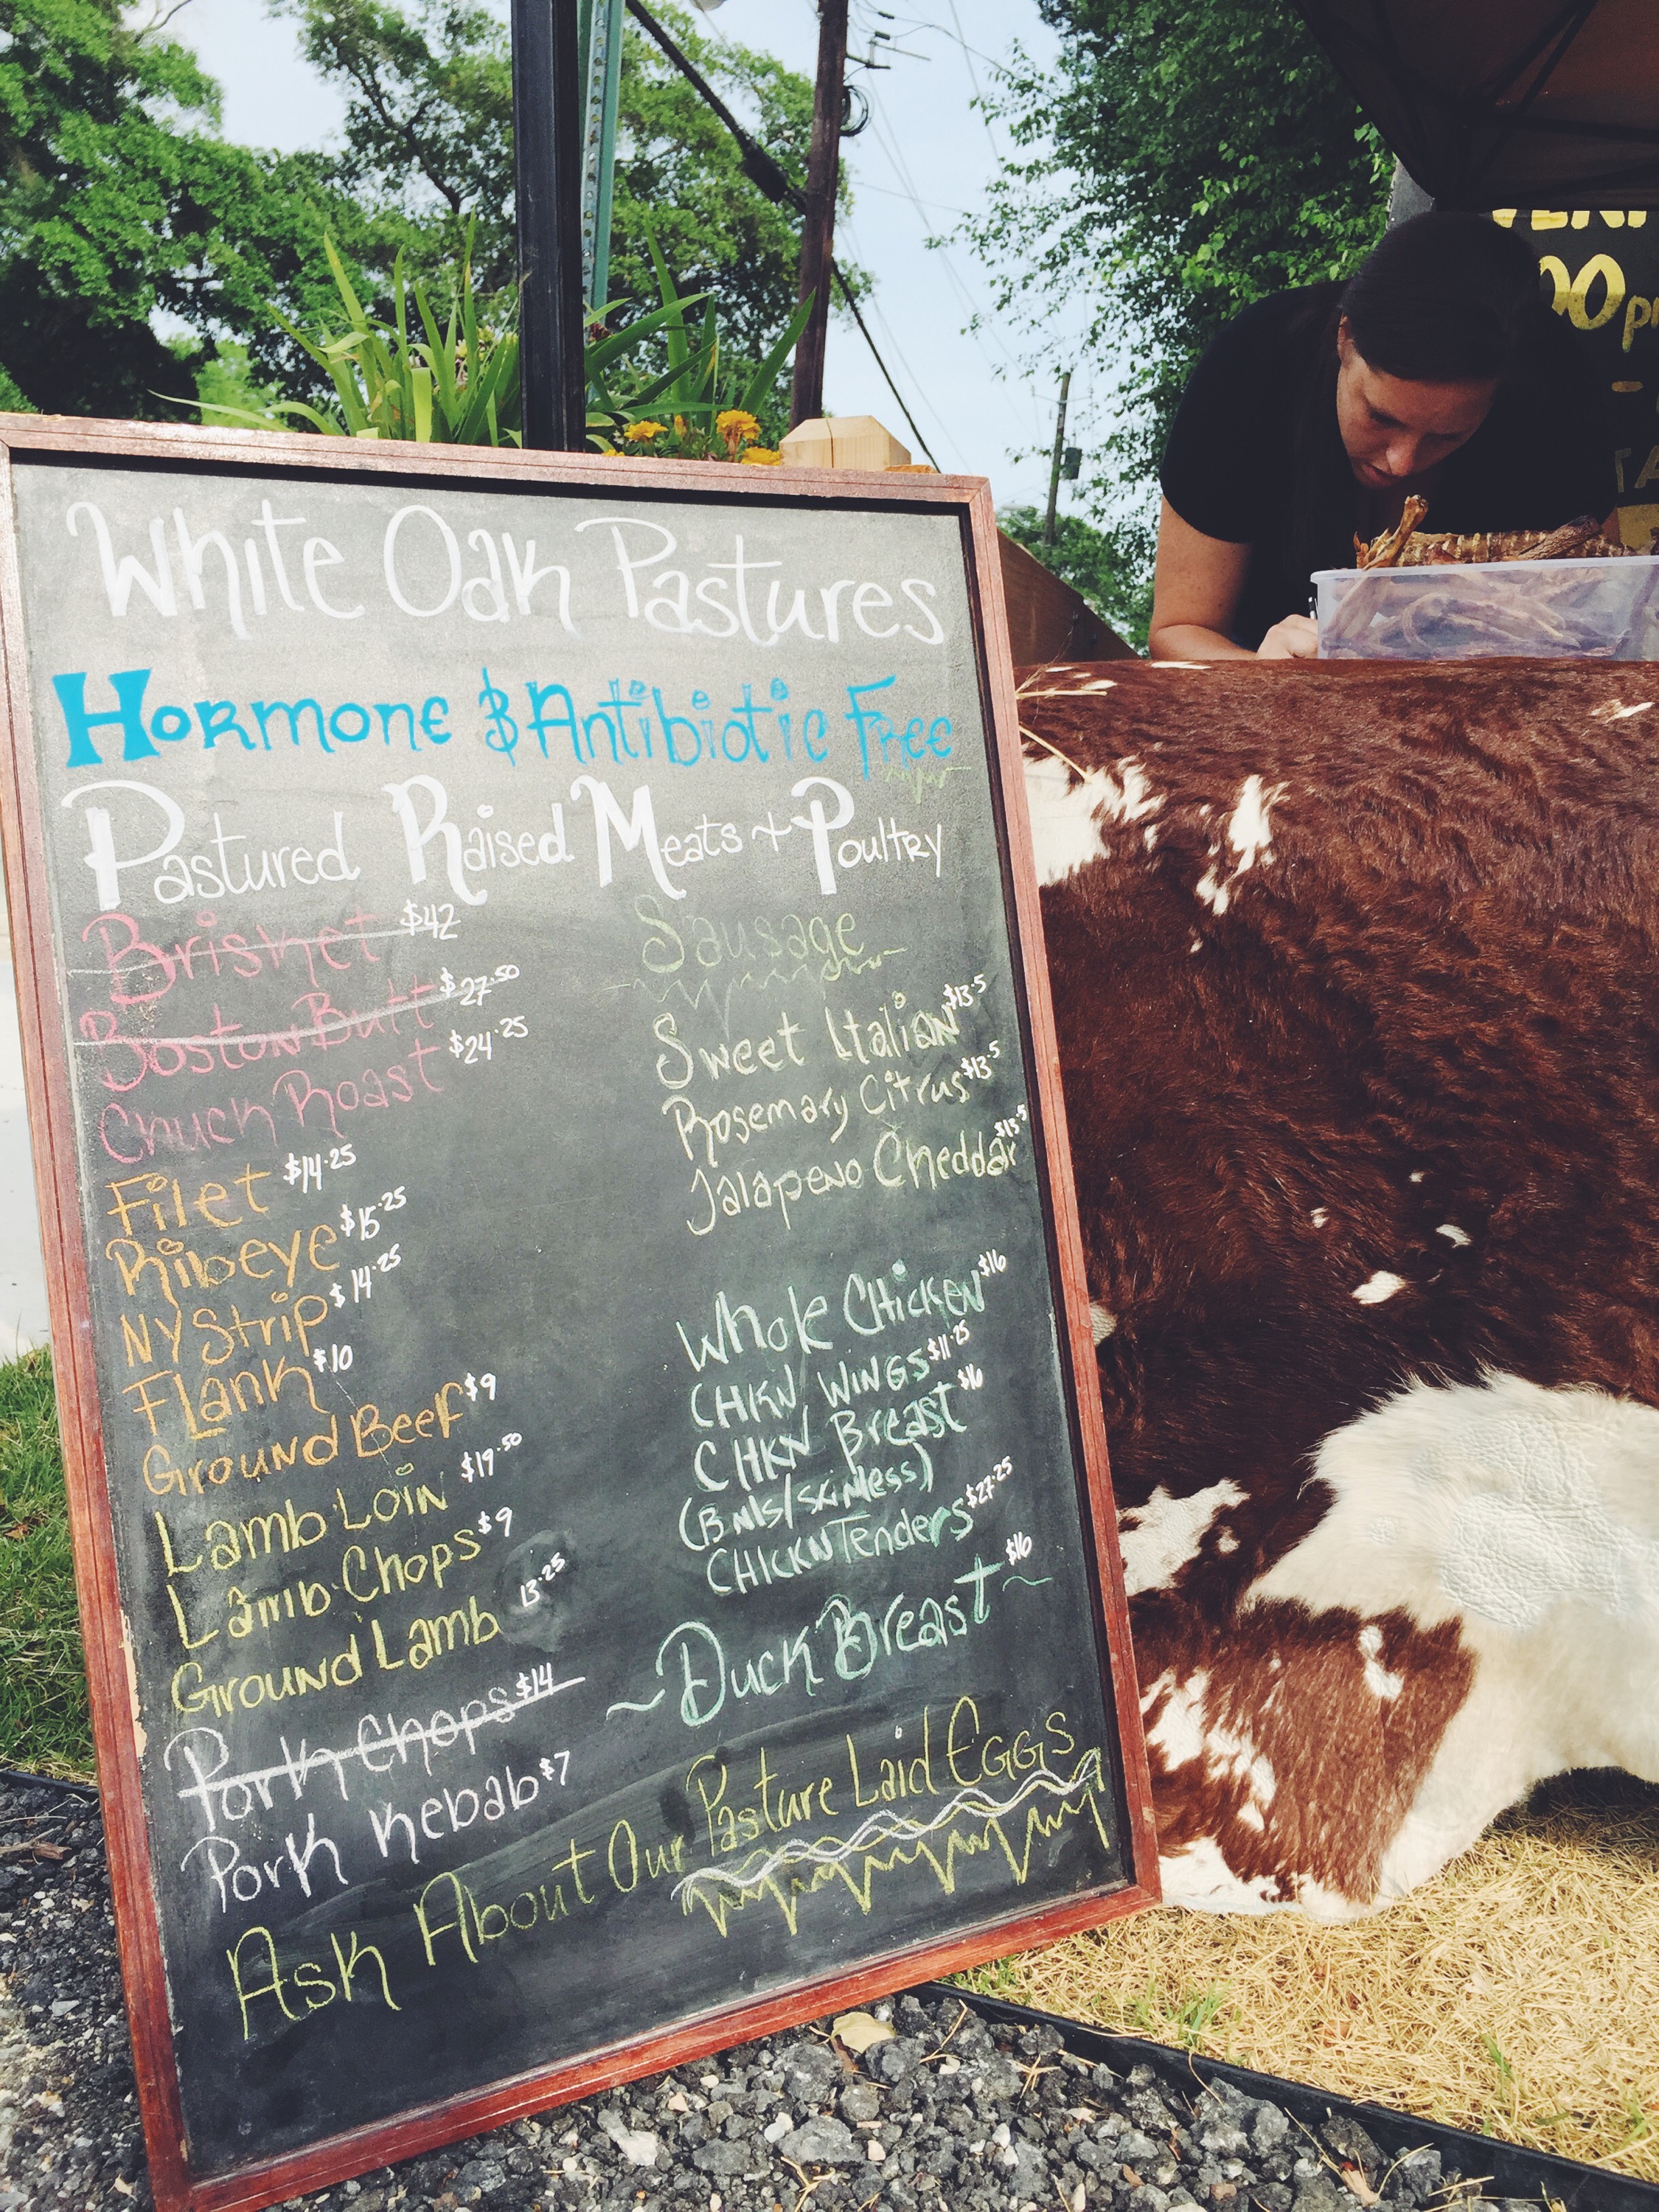 White Oak Pastures
Hormone & Antibiotic Free
Pastured Raised Meats + Poultry
Brisket $42
Boston Butt $27.50
Chuck Roast $24.25
Filet $14.25
Ribeye $15.25
NY Strip $14.25
Flank $10
Ground Beef $9
Lamb Loin $19.50
Lamb Chops $9
Ground Lamb 13.25
Pork Chops $14
Pork Kebab $7
Sausage
Sweet Italian $13.5
Rosemary Citrus $13.5
Jalapeno Cheddar $13.5
Whole Chicken $16
CHKN WINGS $11.25
CHKN Breast $16
(Bnls/skinless)
CHICKN Tenders $27.25
~Duck Breast~ $16
Ask About Our Pasture Laid EGGS
00pm
TA